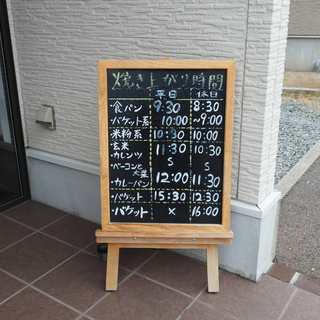 焼き上がり時間
平日 休日
・食パン 9:30 8:30
・バケット系 10:00 ~9:00
・米粉系 10:30 10:00
・玄米 11:30 10:30
・カレンツ S S
・ベーコンと大葉
・カレーパン 12:00 11:30
・バケット 15:30 12:30
・バケット × 16:00